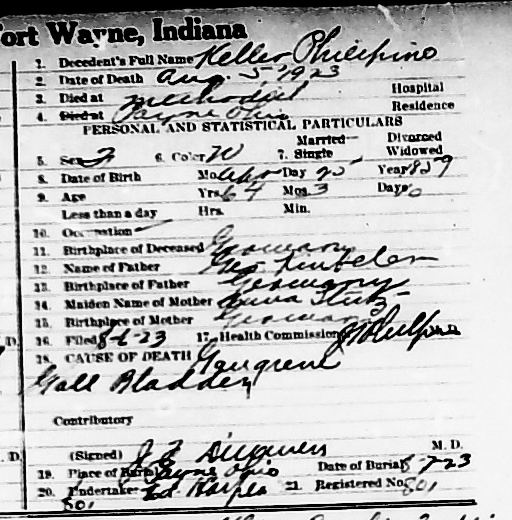 ort Wayne, Indiana
1. Decedent's Full Name Keller Philipino
2. Date of Death Aug. 5-1923
3. Died at Methodist Hospital
4. Died at Payne Ohio Residence
PERSONAL AND STATISTICAL PARTICULARS
Married Divorced
5. Sex F 6. Color W 7. Single Widowed
8. Date of Birth Mo. Apr Day 25 Year 1859
9. Age Yrs. 64 Mos. 3 Days
Less than a day Hrs. Min.
10. Occupation
11. Birthplace of Deceased Germany
12. Name of Father Geo
13. Birthplace of Father Germany
14. Maiden Name of Mother
15. Birthplace of Mother Germany
16. Filed 8-6-23 17. Health Commissioner
18. CAUSE OF DEATH Gangrene
Gall Bladder
Contributory
(Signed) M. D.
19. Place of Burial Payne Ohio Date of Burial 8-7-23
20. Undertaker Ed Harper 21. Registered No. 801
801
D.
. D.